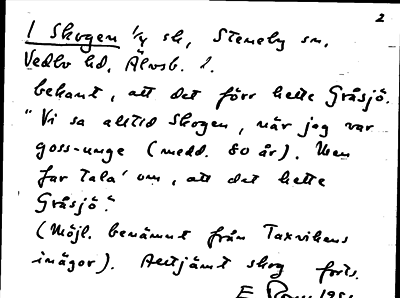 2
1 Skogen 1/4 sk, Steneby sn,
Vedbo hd, Älvsb. l.
bekant, att det förr hette Gråsjö.
"Vi sa alltid Skogen, när jag var
goss-unge (medd. 80 år). Men
far tala' om, att det hette
Gråsjö."
(Möjl. benämnt från Taxvikens
inägor). Alltjämt skog forts.
E